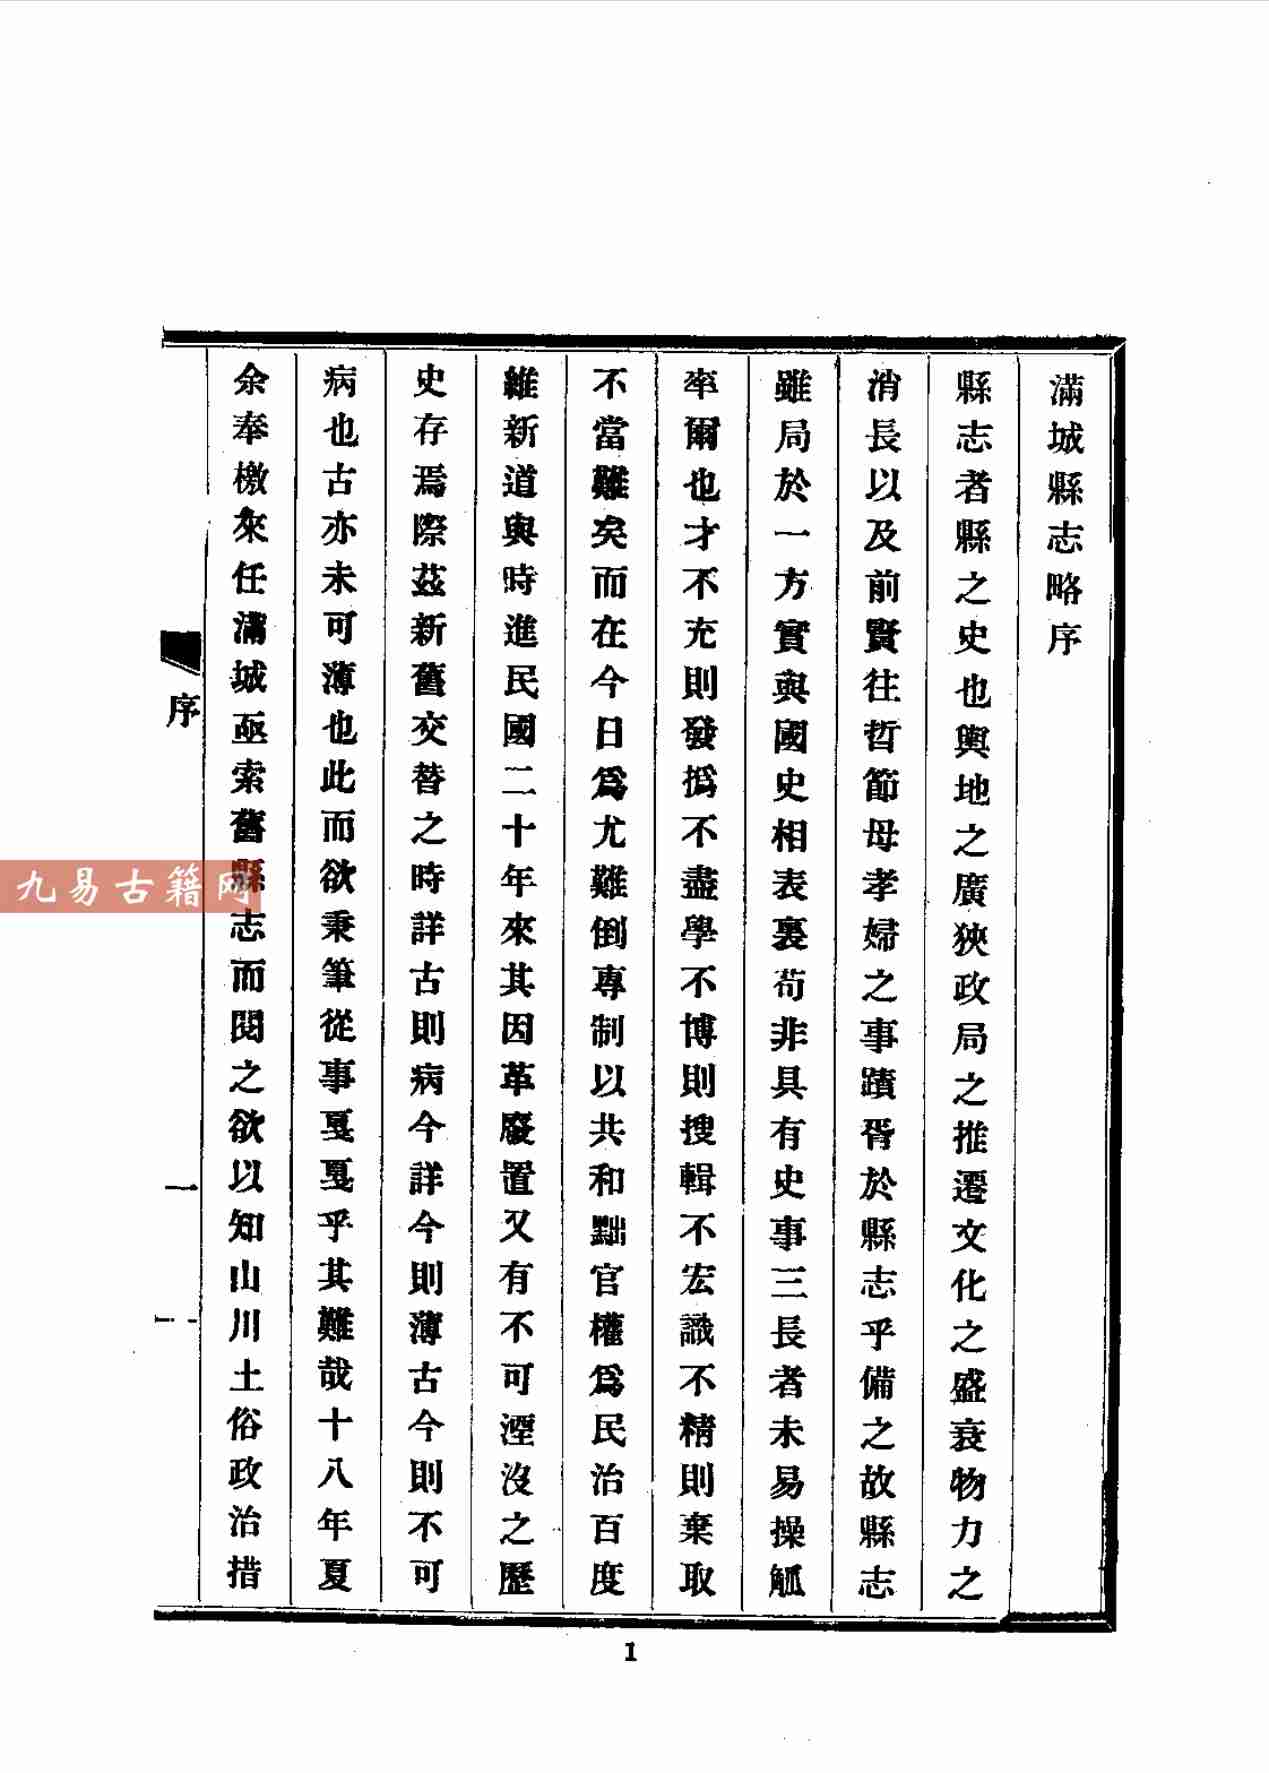 滿城縣志略序
縣志者縣之史也輿地之廣狹政局之推遷文化之盛衰物力之
消長以及前賢往哲節母孝婦之事蹟胥於縣志乎備之故縣志
雖局於一方實與國史相表裏茍非具有史事三長者未易操觚
率爾也才不充則發撝不盡學不博則搜輯不宏識不精則棄取
不當難矣而在今日爲尤難倒專制以共和黜官權爲民治百度
維新道與時進民國二十年來其因革廢置又有不可湮沒之歷
史存焉際茲新舊交替之時詳古則病今詳今則薄古今則不可
病也古亦未可薄也此而欲秉筆從事戛戛乎其難哉十八年夏
余奉檄來任滿城亟索舊縣志而閱之欲以知山川土俗政治措
序
一
1
九易古籍网